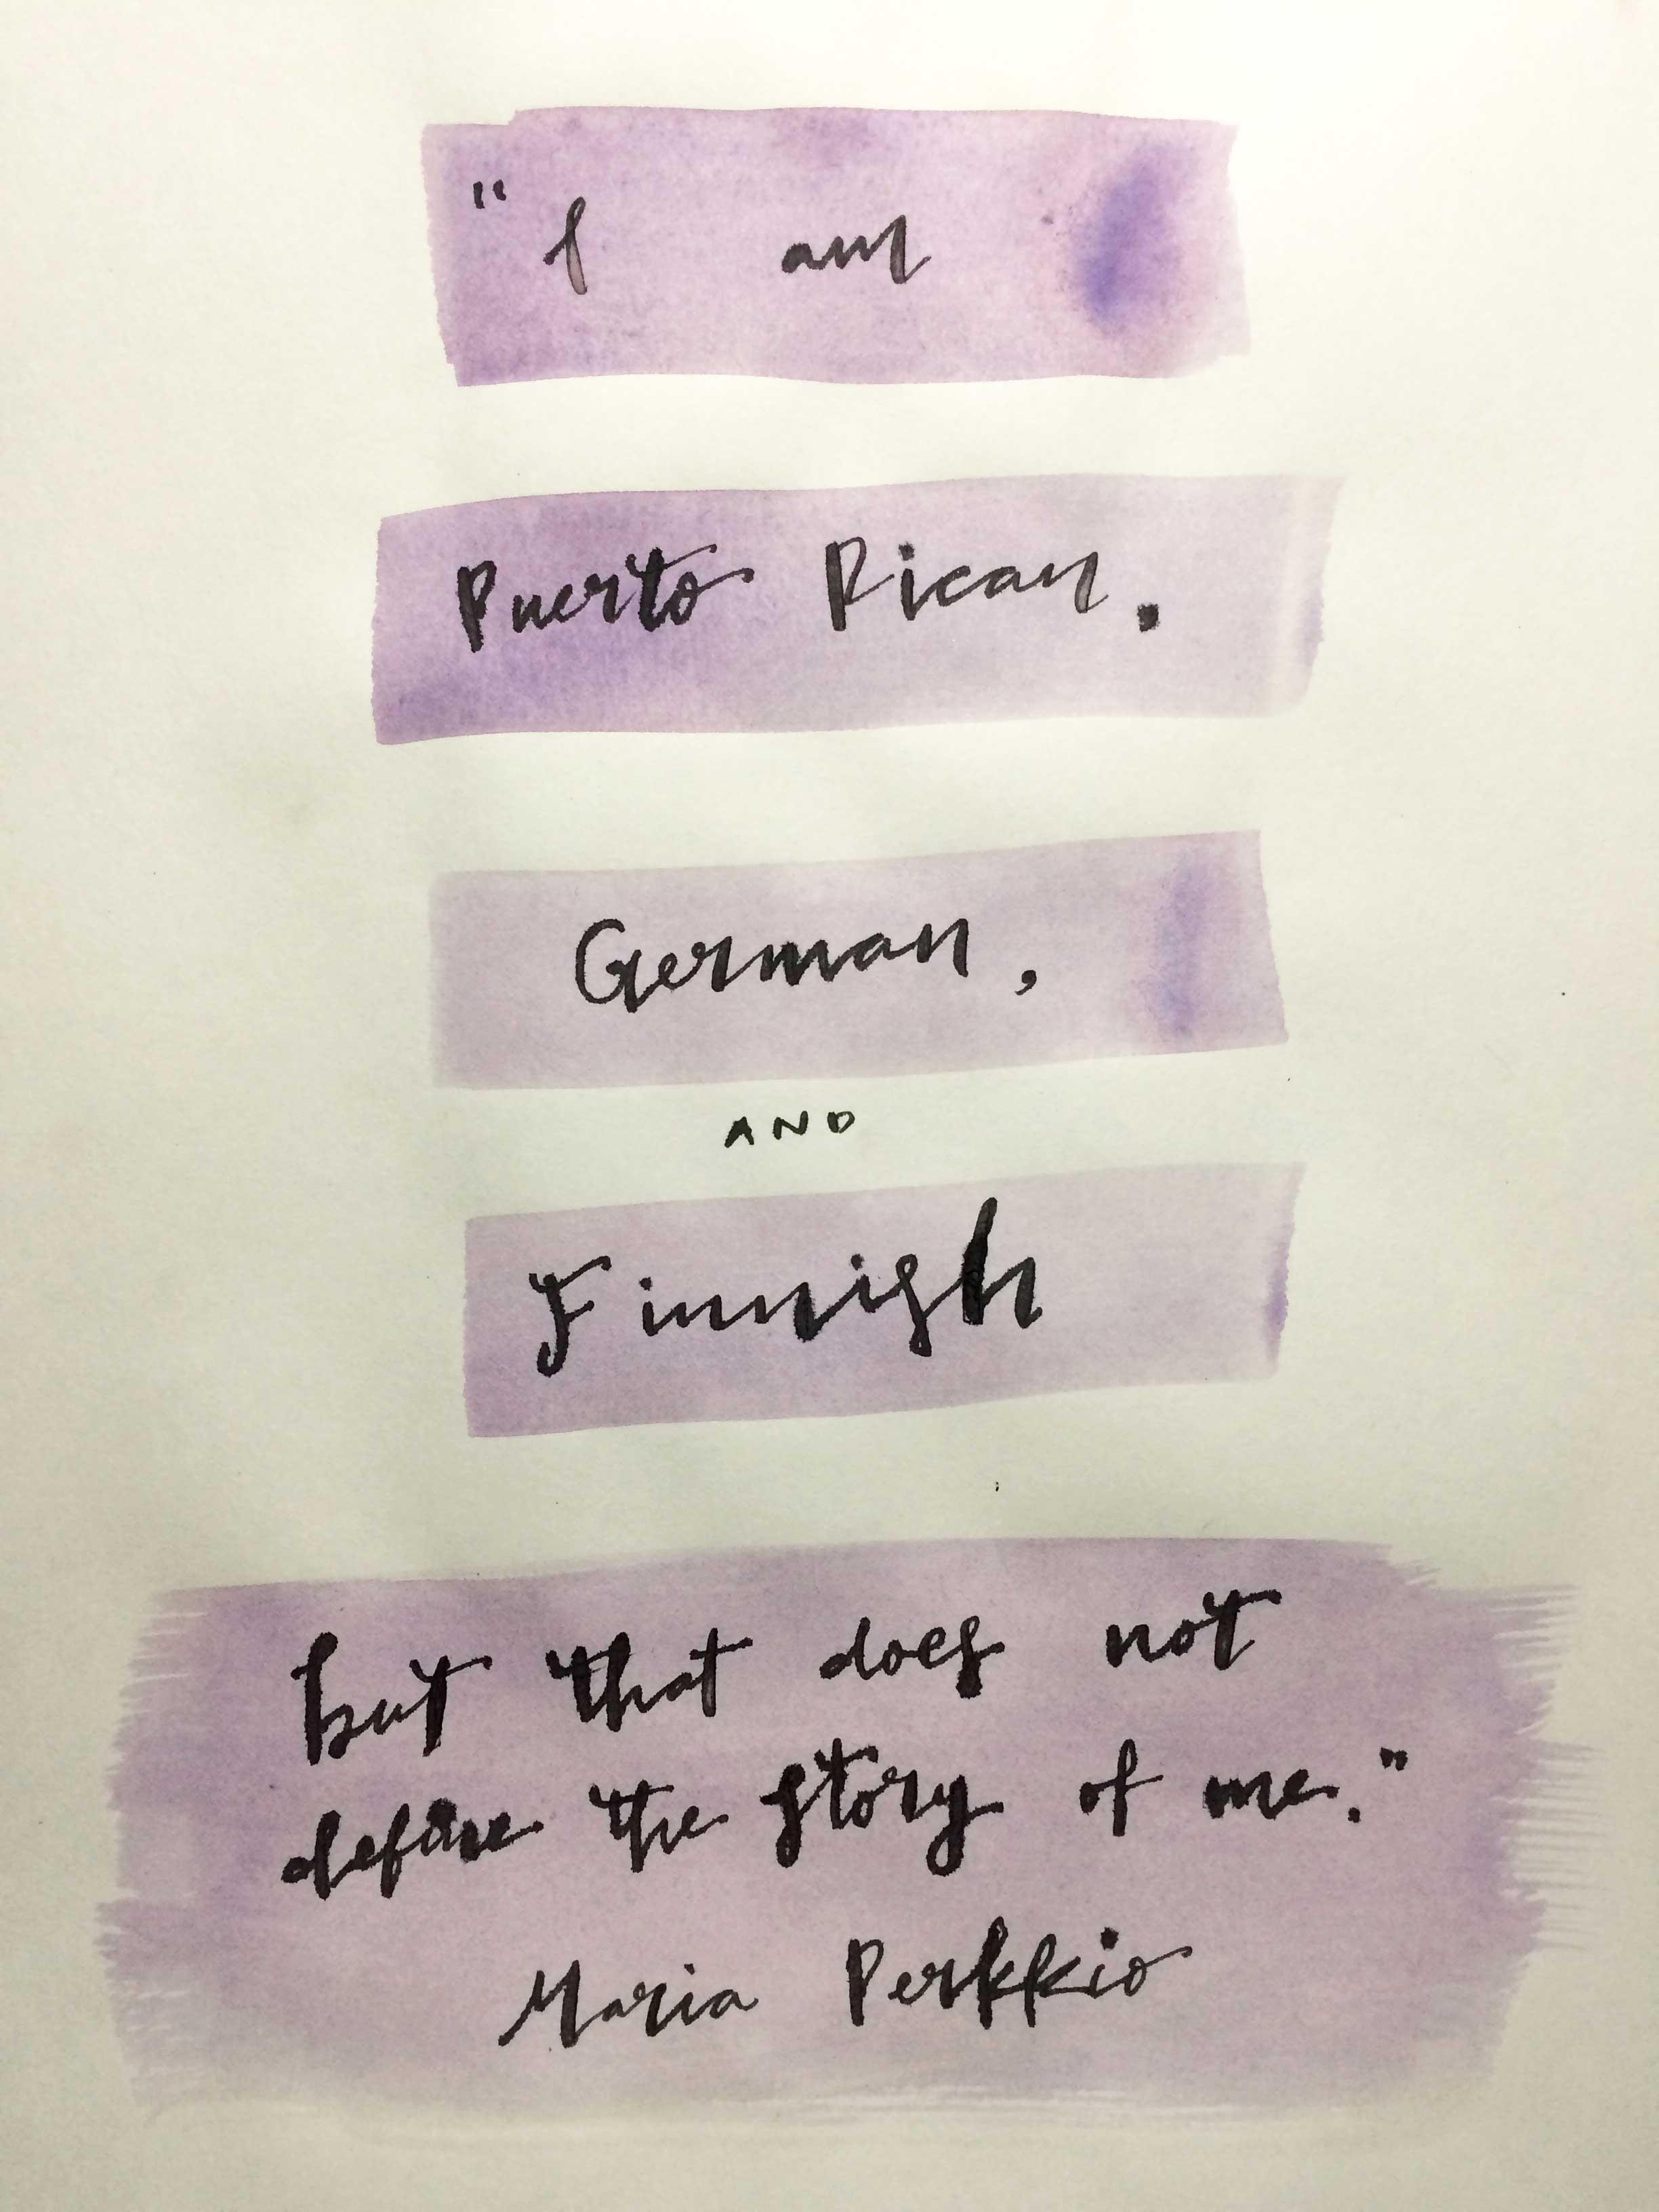 "I am
Puerto Rican.
German,
AND
Finnish
but that does not
define the story of me."
Maria Perkkio